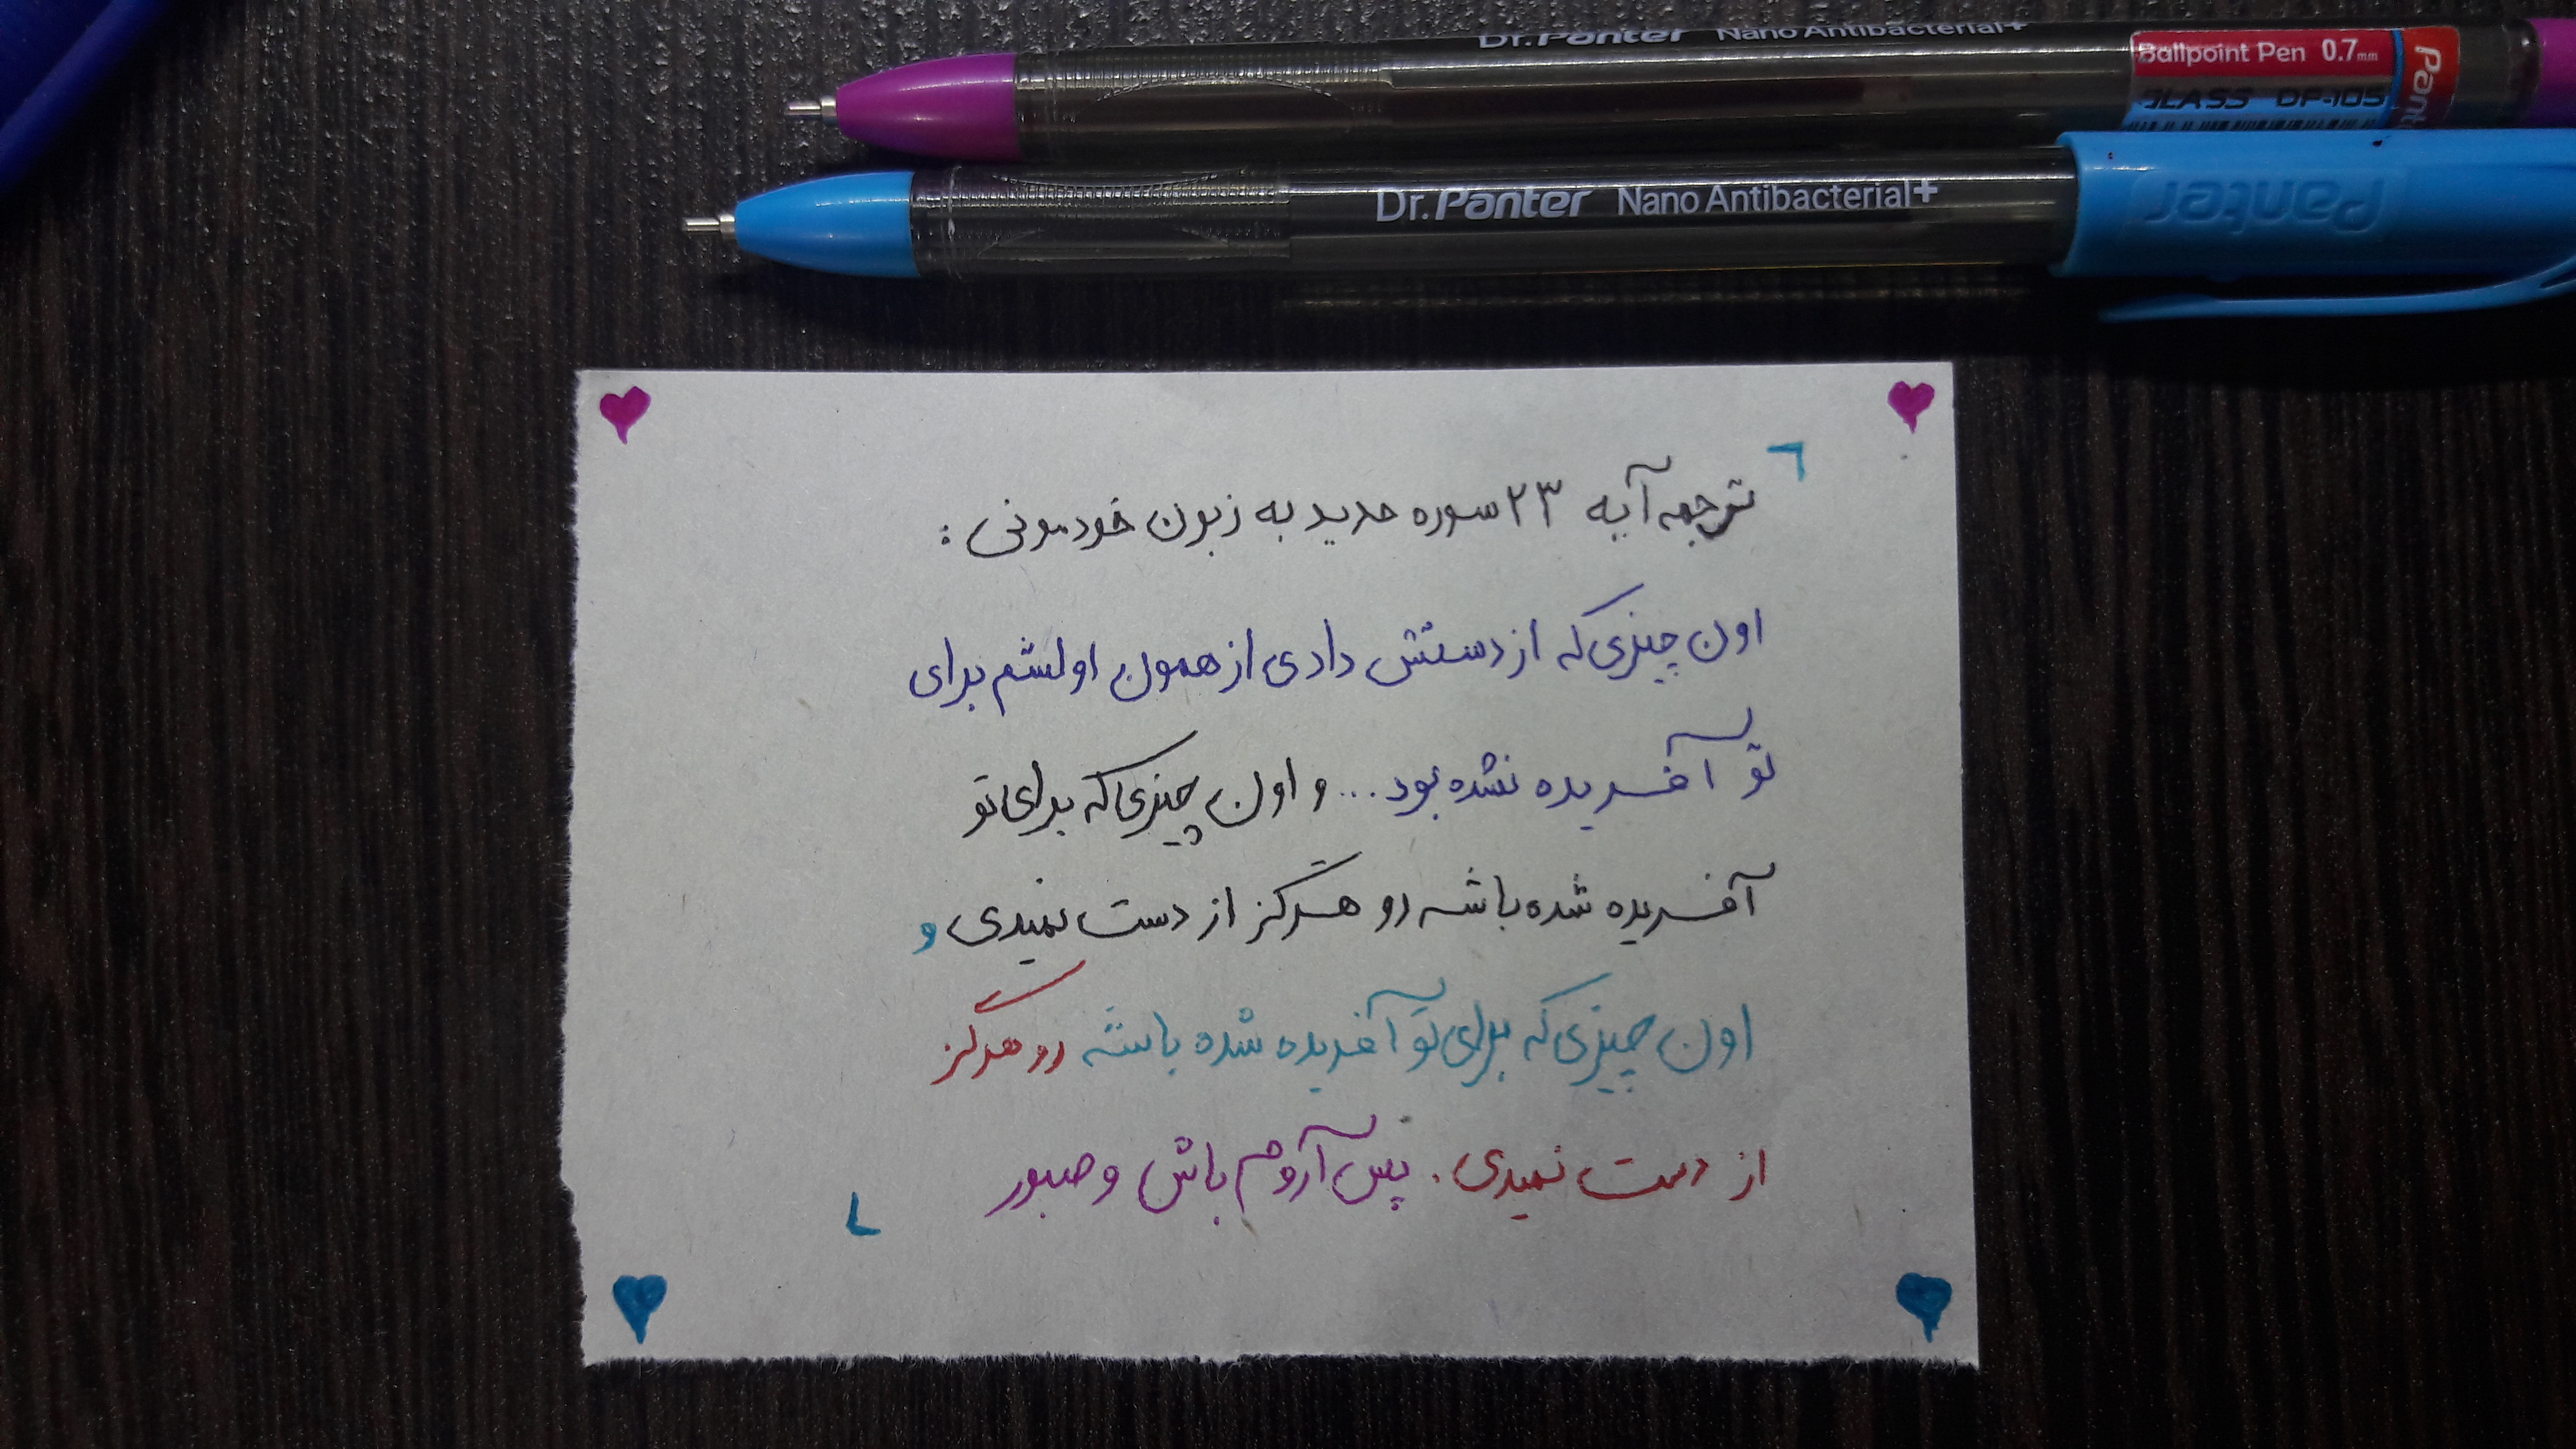 Dr. Panter Nano Antibacterial+
Ballpoint Pen 0.7mm
GLASS DP-105
Dr. Panter Nano Antibacterial+
Panter
ترجمه آیه ۲۳ سوره حدید به زبون خودمونی :
اون چیزی که از دستش دادی از همون اولشم برای
تو آفریده نشده بود... و اون چیزی که برای تو
آفریده شده باشه رو هرگز از دست نمیدی و
اون چیزی که برای تو آفریده شده باشه رو هرگز
از دست نمیدی . پس آروم باش و صبور